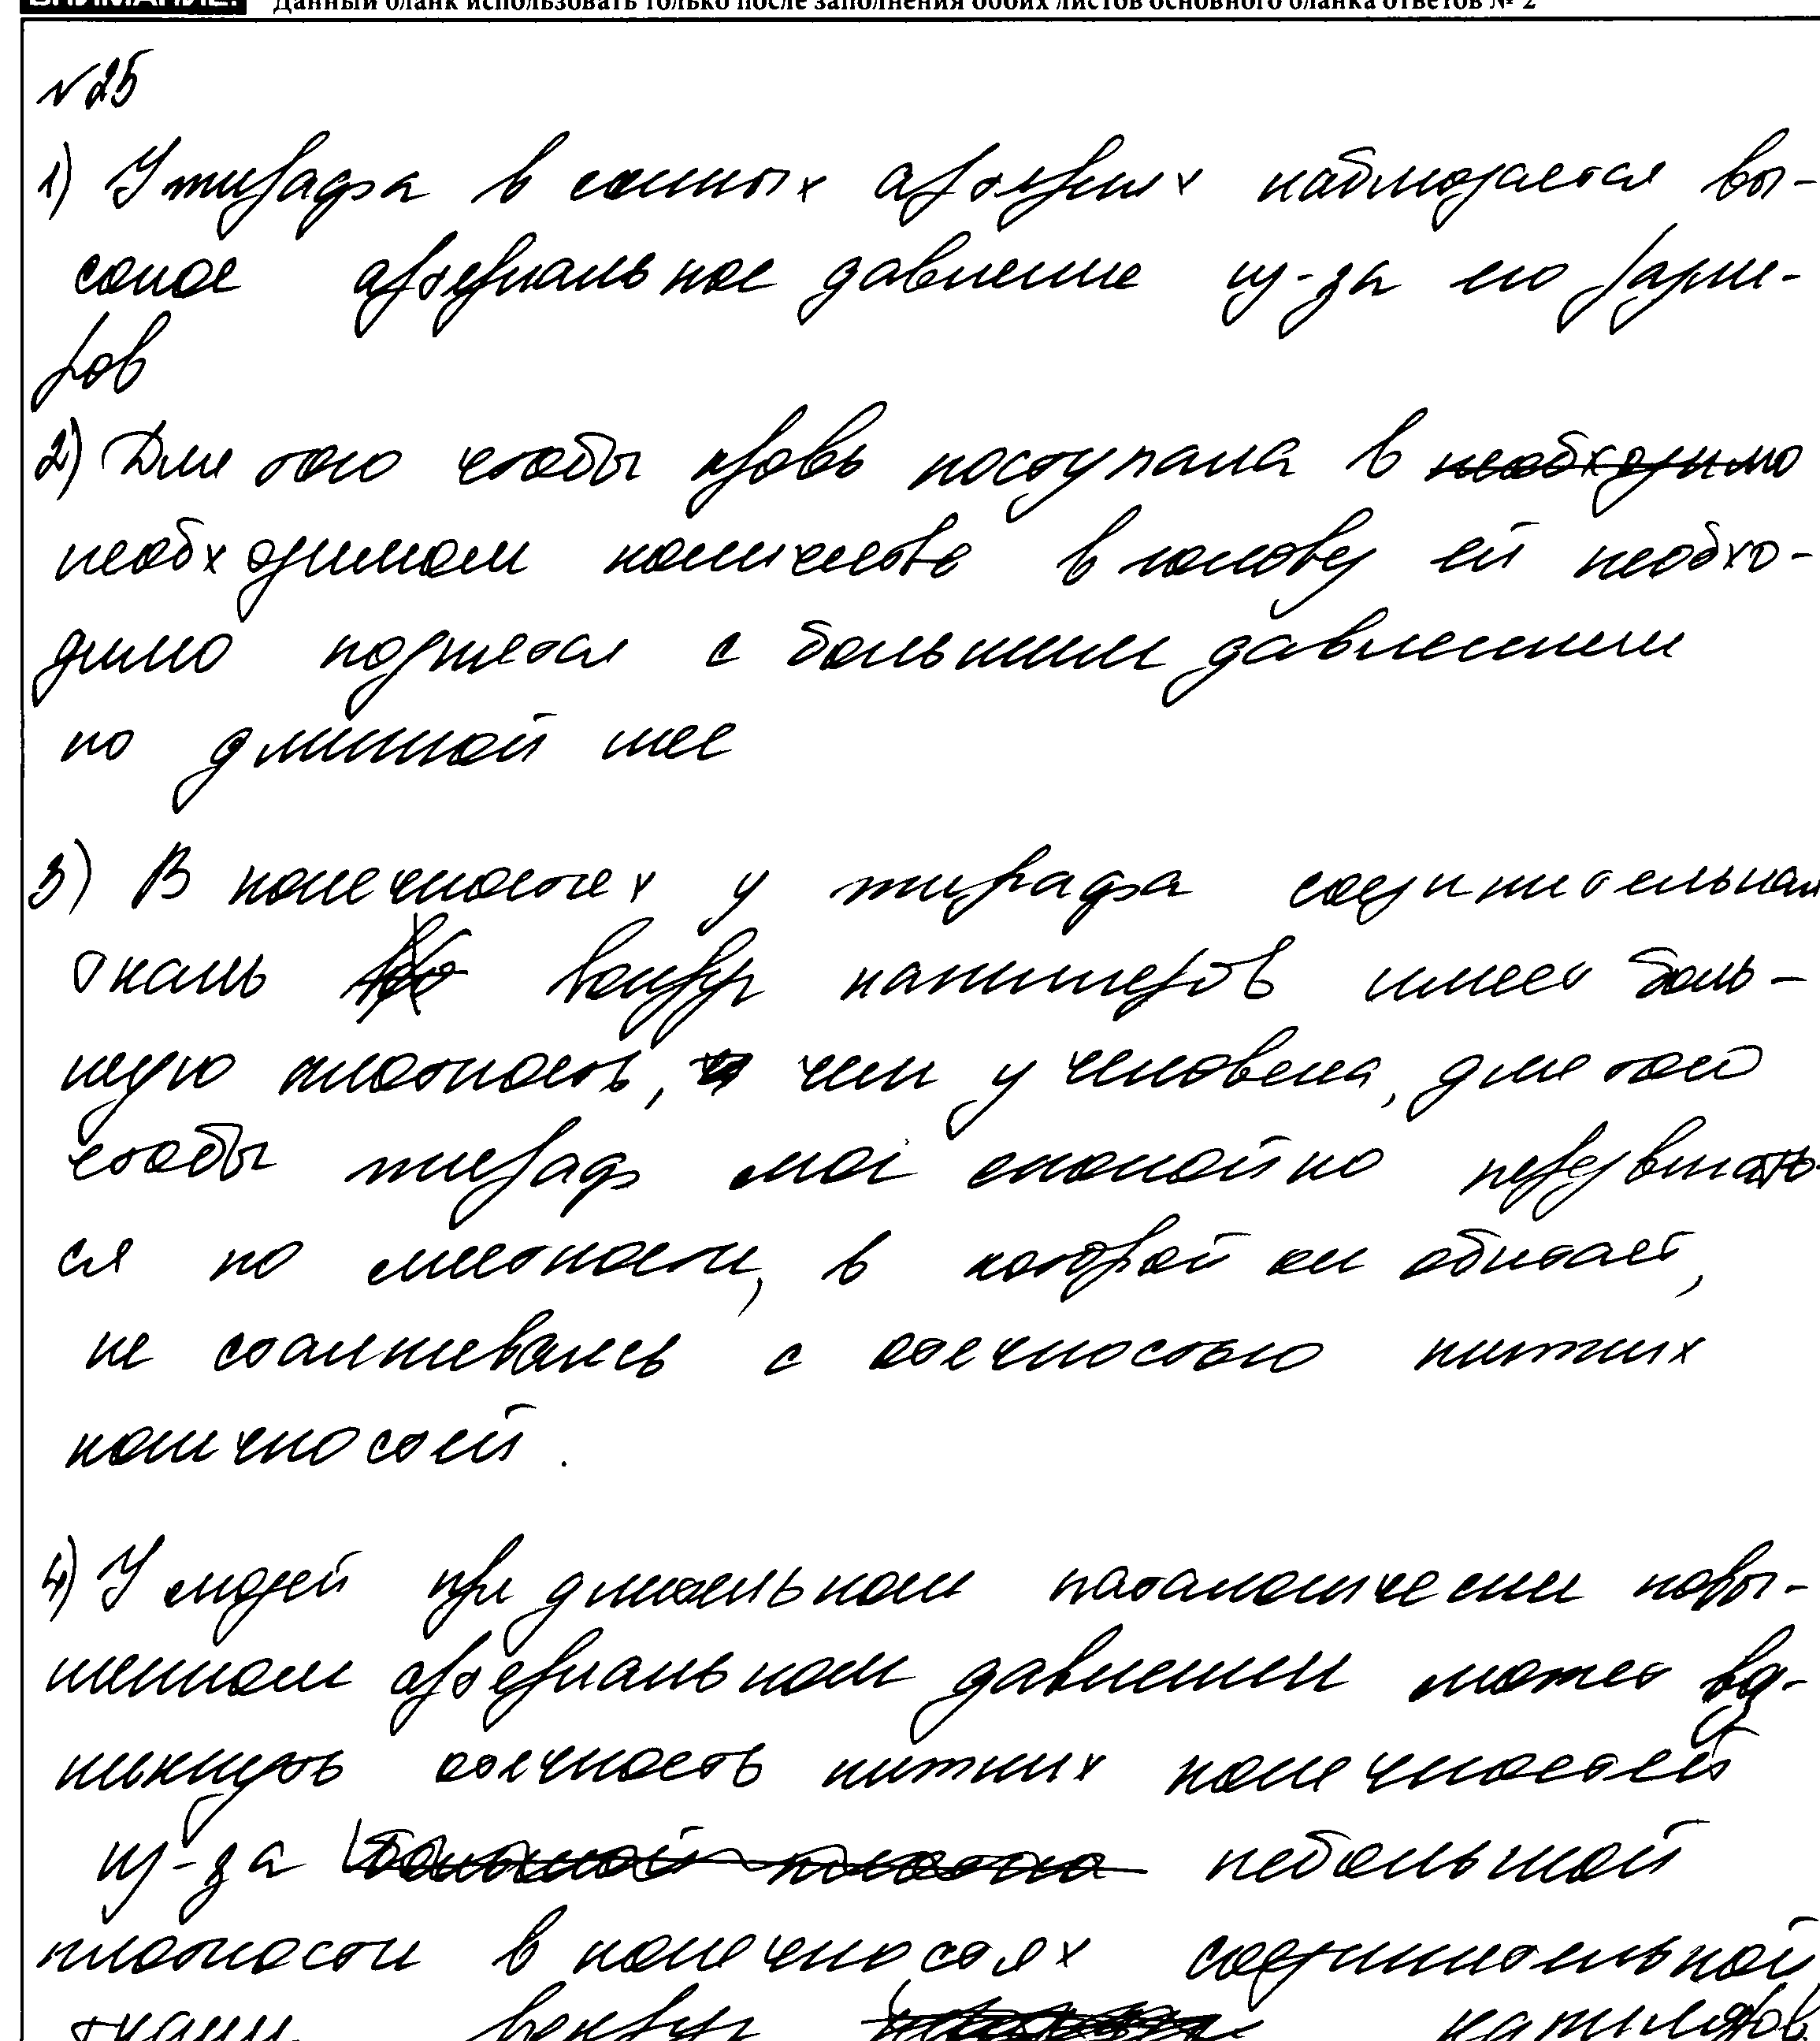 ВНИМАНИЕ! Данный бланк использовать только после заполнения обоих листов основного бланка ответов № 2
№25
1) У жирафа в сонных артериях наблюдается вы-
сокое артериальное давление из-за его разме-
ров
2) Для того чтобы кровь поступала в необходимо
необходимом количестве в голову ей необхо-
димо поднятся с большим давлением
по длинной шее
3) В конечностях у жирафа соединительная
ткань вокруг капилляров имеет боль-
шую плотность, чем у человека, для того
чтобы жираф мог спокойно передвигать-
ся по местности, в которой он обитает,
не сталкиваясь с отечностью нижних
конечностей.
4) У людей при длительном паталогически повы-
шенном артериальном давлении может воз-
никнуть отечность нижних конечностей
из-за небольшой
плотности в конечностях соединительной
ткани вокруг капилляров